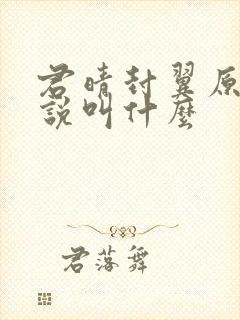 君晴封翼原
說叫什麼
君落舞